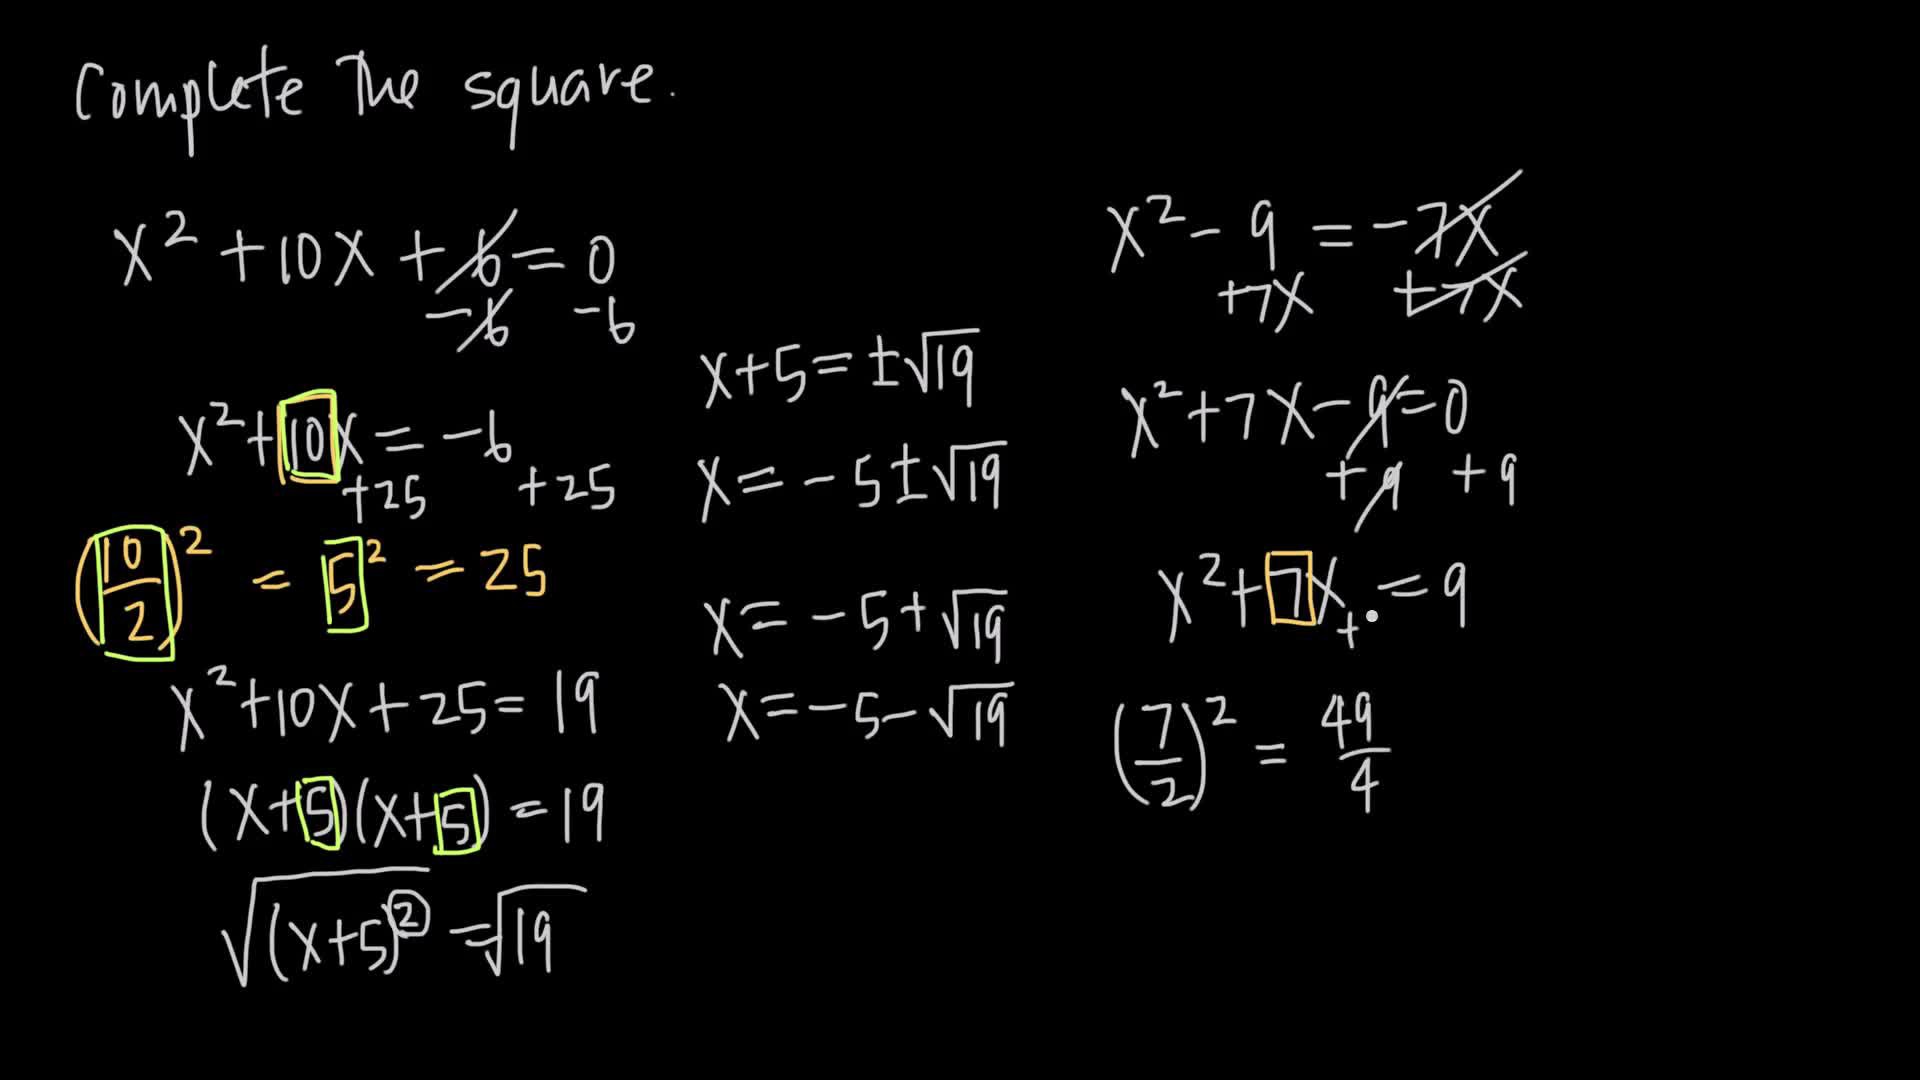 Complete the square.
x² + 10x + 6 = 0
-6 -6
x² + 10x = -6
+25 +25
(10/2)² = 5² = 25
x² + 10x + 25 = 19
(x+5)(x+5) = 19
√(x+5)² = √19
x+5 = ±√19
x = -5 ± √19
x = -5 + √19
x = -5 - √19
x² - 9 = -7x
+7x +7x
x² + 7x - 9 = 0
+9 +9
x² + 7x + = 9
(7/2)² = 49/4